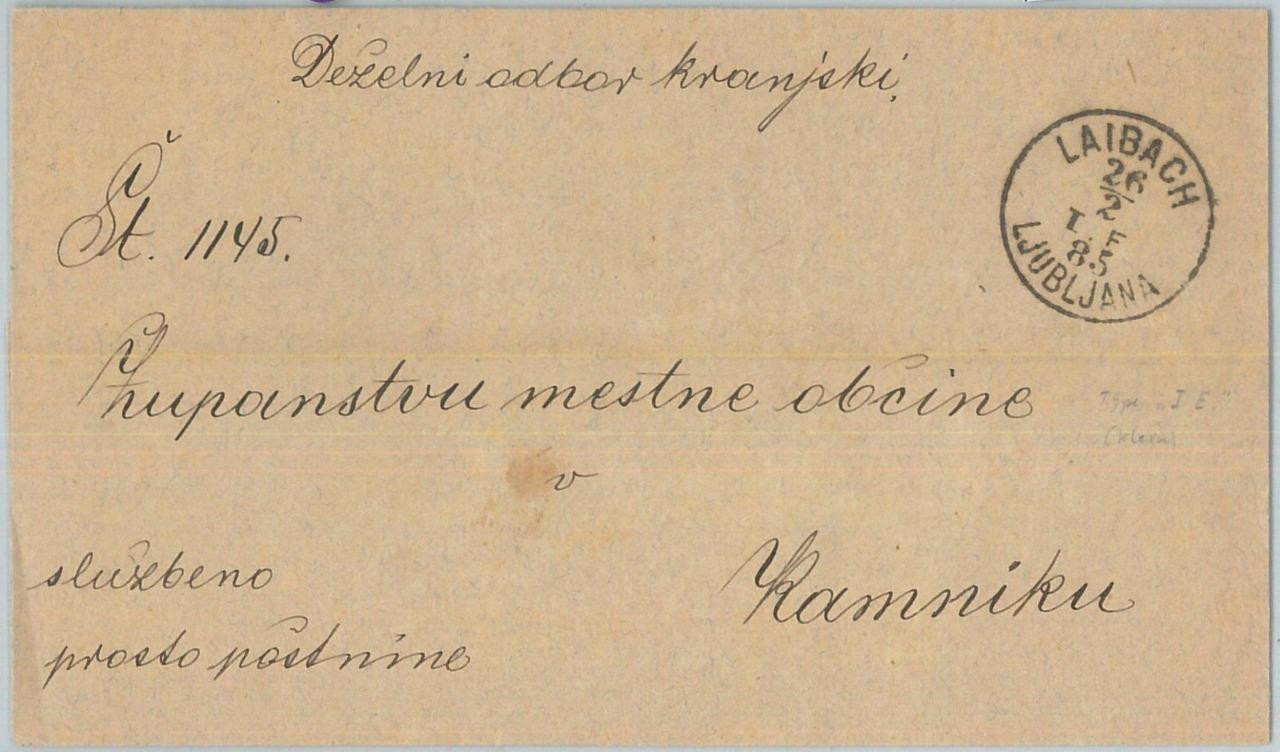 Deželni odbor kranjski,
Št. 1145.
LAIBACH
26
2
I. F
85
LJUBLJANA
Županstvu mestne občine
v
Kamniku
službeno
prosto poštnine
Type "I E."